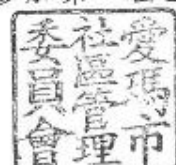 愛瑪市
社區管理
委員會